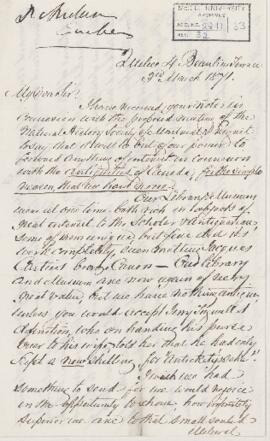 McGILL UNIVERSITY
ARCHIVES
ACC. NO.
REF.
Quebec
Quebec 4 Terrace
3rd March 1871.
My Dear Sir
I have received your note in
connexion with the proposed meeting of the
Natural History Society of Montreal & regret
to say that it will be out of our power to
forward anything of interest in connexion
with the antiquities of Canada, for the simple
reason, that we have none.
Our Library & Museum
were at one time both rich in subjects of
great interest to the Scholar & Antiquarian
Some of them unique, but fire did its
work completely, even melting Jacques
Cartier's bronze Canon — Our Library
and Museum are now again of really
great value, but we have nothing antique,
unless you would accept Tony
definition, who on handing his purse
over to his wife told her that he had only
kept a new shilling "for antickety's sake."
I wish we had
something to send, for we would rejoice
in the opportunity to show how
superior we are to that small souled